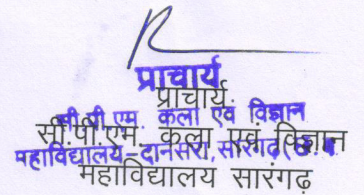 प्राचार्य
प्राचार्य
सी.पी.एम. कला एवं विज्ञान
सी.पी.एम. कला एवं विज्ञान
महाविद्यालय-दानसरा, सारंगढ़(छ.ग.
महाविद्यालय सारंगढ़